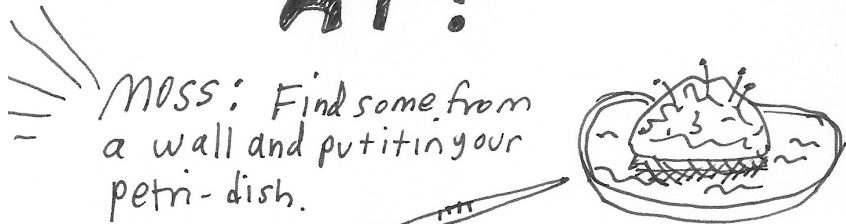 AT!
Moss: Find some from
a wall and put it in your
petri-dish.